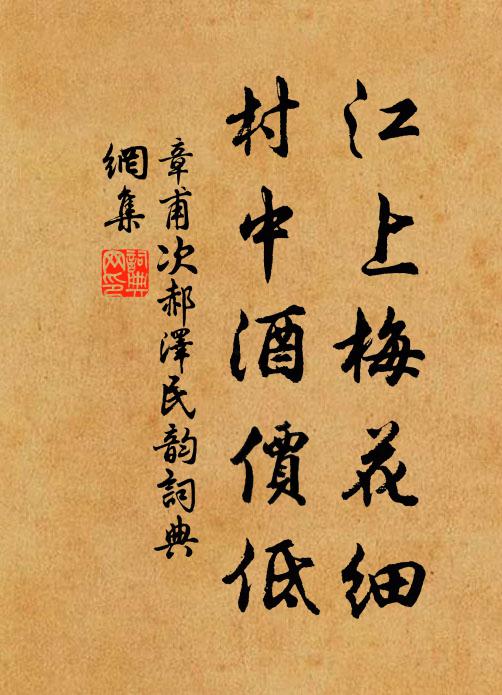 江上梅花細
村中酒價低
章甫次郝澤民韵詞典
網集
詞典
网印